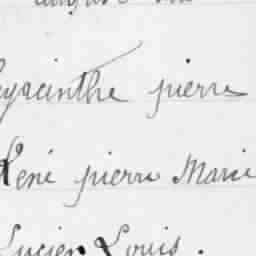 hyacinthe pierre
René pierre Marie
Lucien Louis.